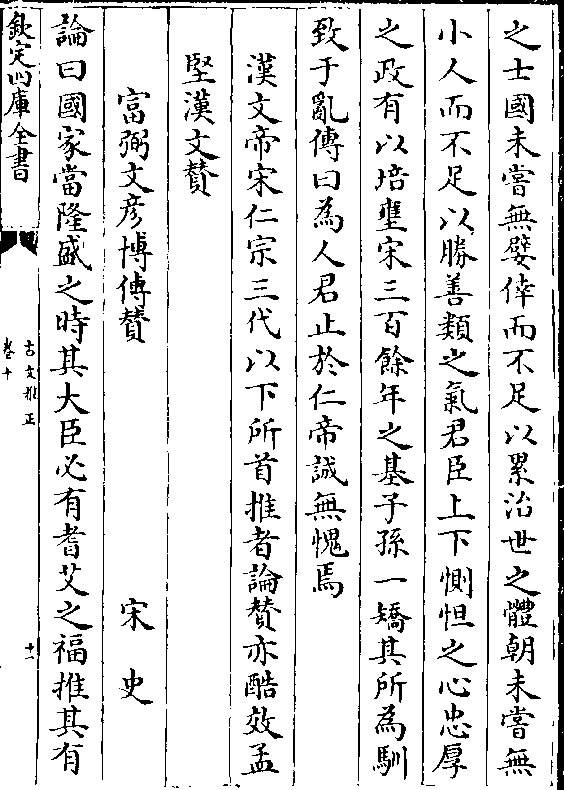 之士國未嘗無嬖倖而不足以累治世之體朝未嘗無
小人而不足以勝善類之氣君臣上下惻怛之心忠厚
之政有以培壅宋三百餘年之基子孫一矯其所為馴
致于亂傳曰為人君止於仁帝誠無愧焉
漢文帝宋仁宗三代以下所首推者論賛亦酷效孟
堅漢文賛
富弼文彦博傳賛 宋史
論曰國家當隆盛之時其大臣必有耆艾之福推其有
欽定四庫全書
古文雅正
卷十
十一